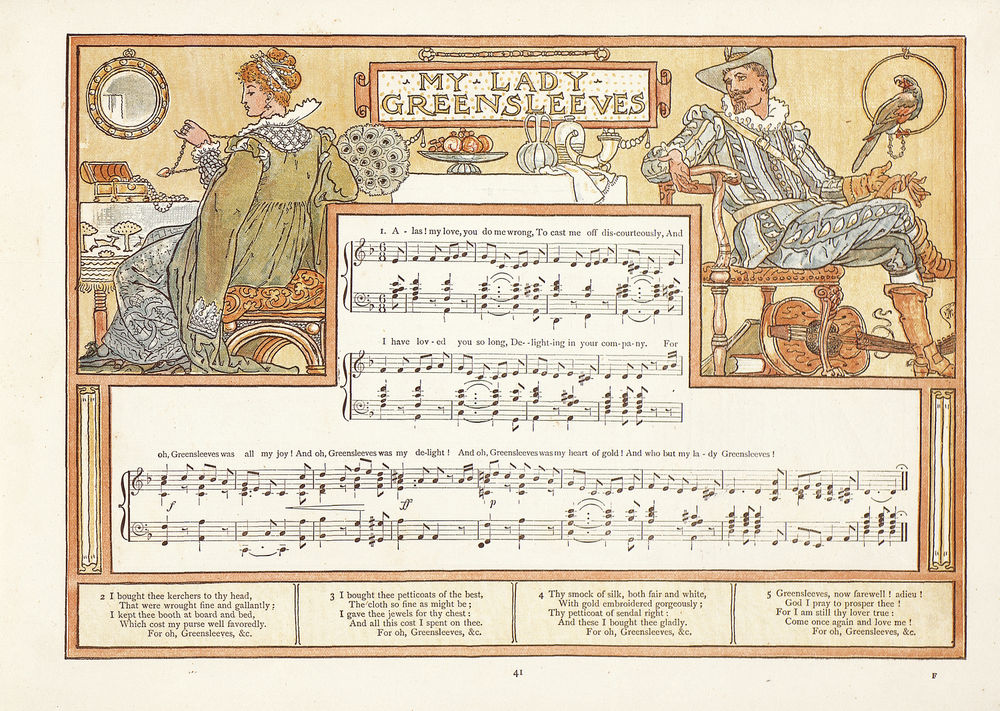 MY LADY
GREENSLEEVES
1. A - las! my love, you do me wrong, To cast me off dis-courteously, And
I have lov - ed you so long, De--light-ing in your com-pa-ny. For
oh, Greensleeves was all my joy! And oh, Greensleeves was my de-light! And oh, Greensleeves was my heart of gold! And who but my la - dy Greensleeves!
f
ff
p
2 I bought thee kerchers to thy head,
That were wrought fine and gallantly;
I kept thee booth at board and bed,
Which cost my purse well favoredly.
For oh, Greensleeves, &c.
3 I bought thee petticoats of the best,
The cloth so fine as might be;
I gave thee jewels for thy chest:
And all this cost I spent on thee.
For oh, Greensleeves, &c.
4 Thy smock of silk, both fair and white,
With gold embroidered gorgeously;
Thy petticoat of sendal right:
And these I bought thee gladly.
For oh, Greensleeves, &c.
5 Greensleeves, now farewell! adieu!
God I pray to prosper thee!
For I am still thy lover true:
Come once again and love me!
For oh, Greensleeves, &c.
41
F